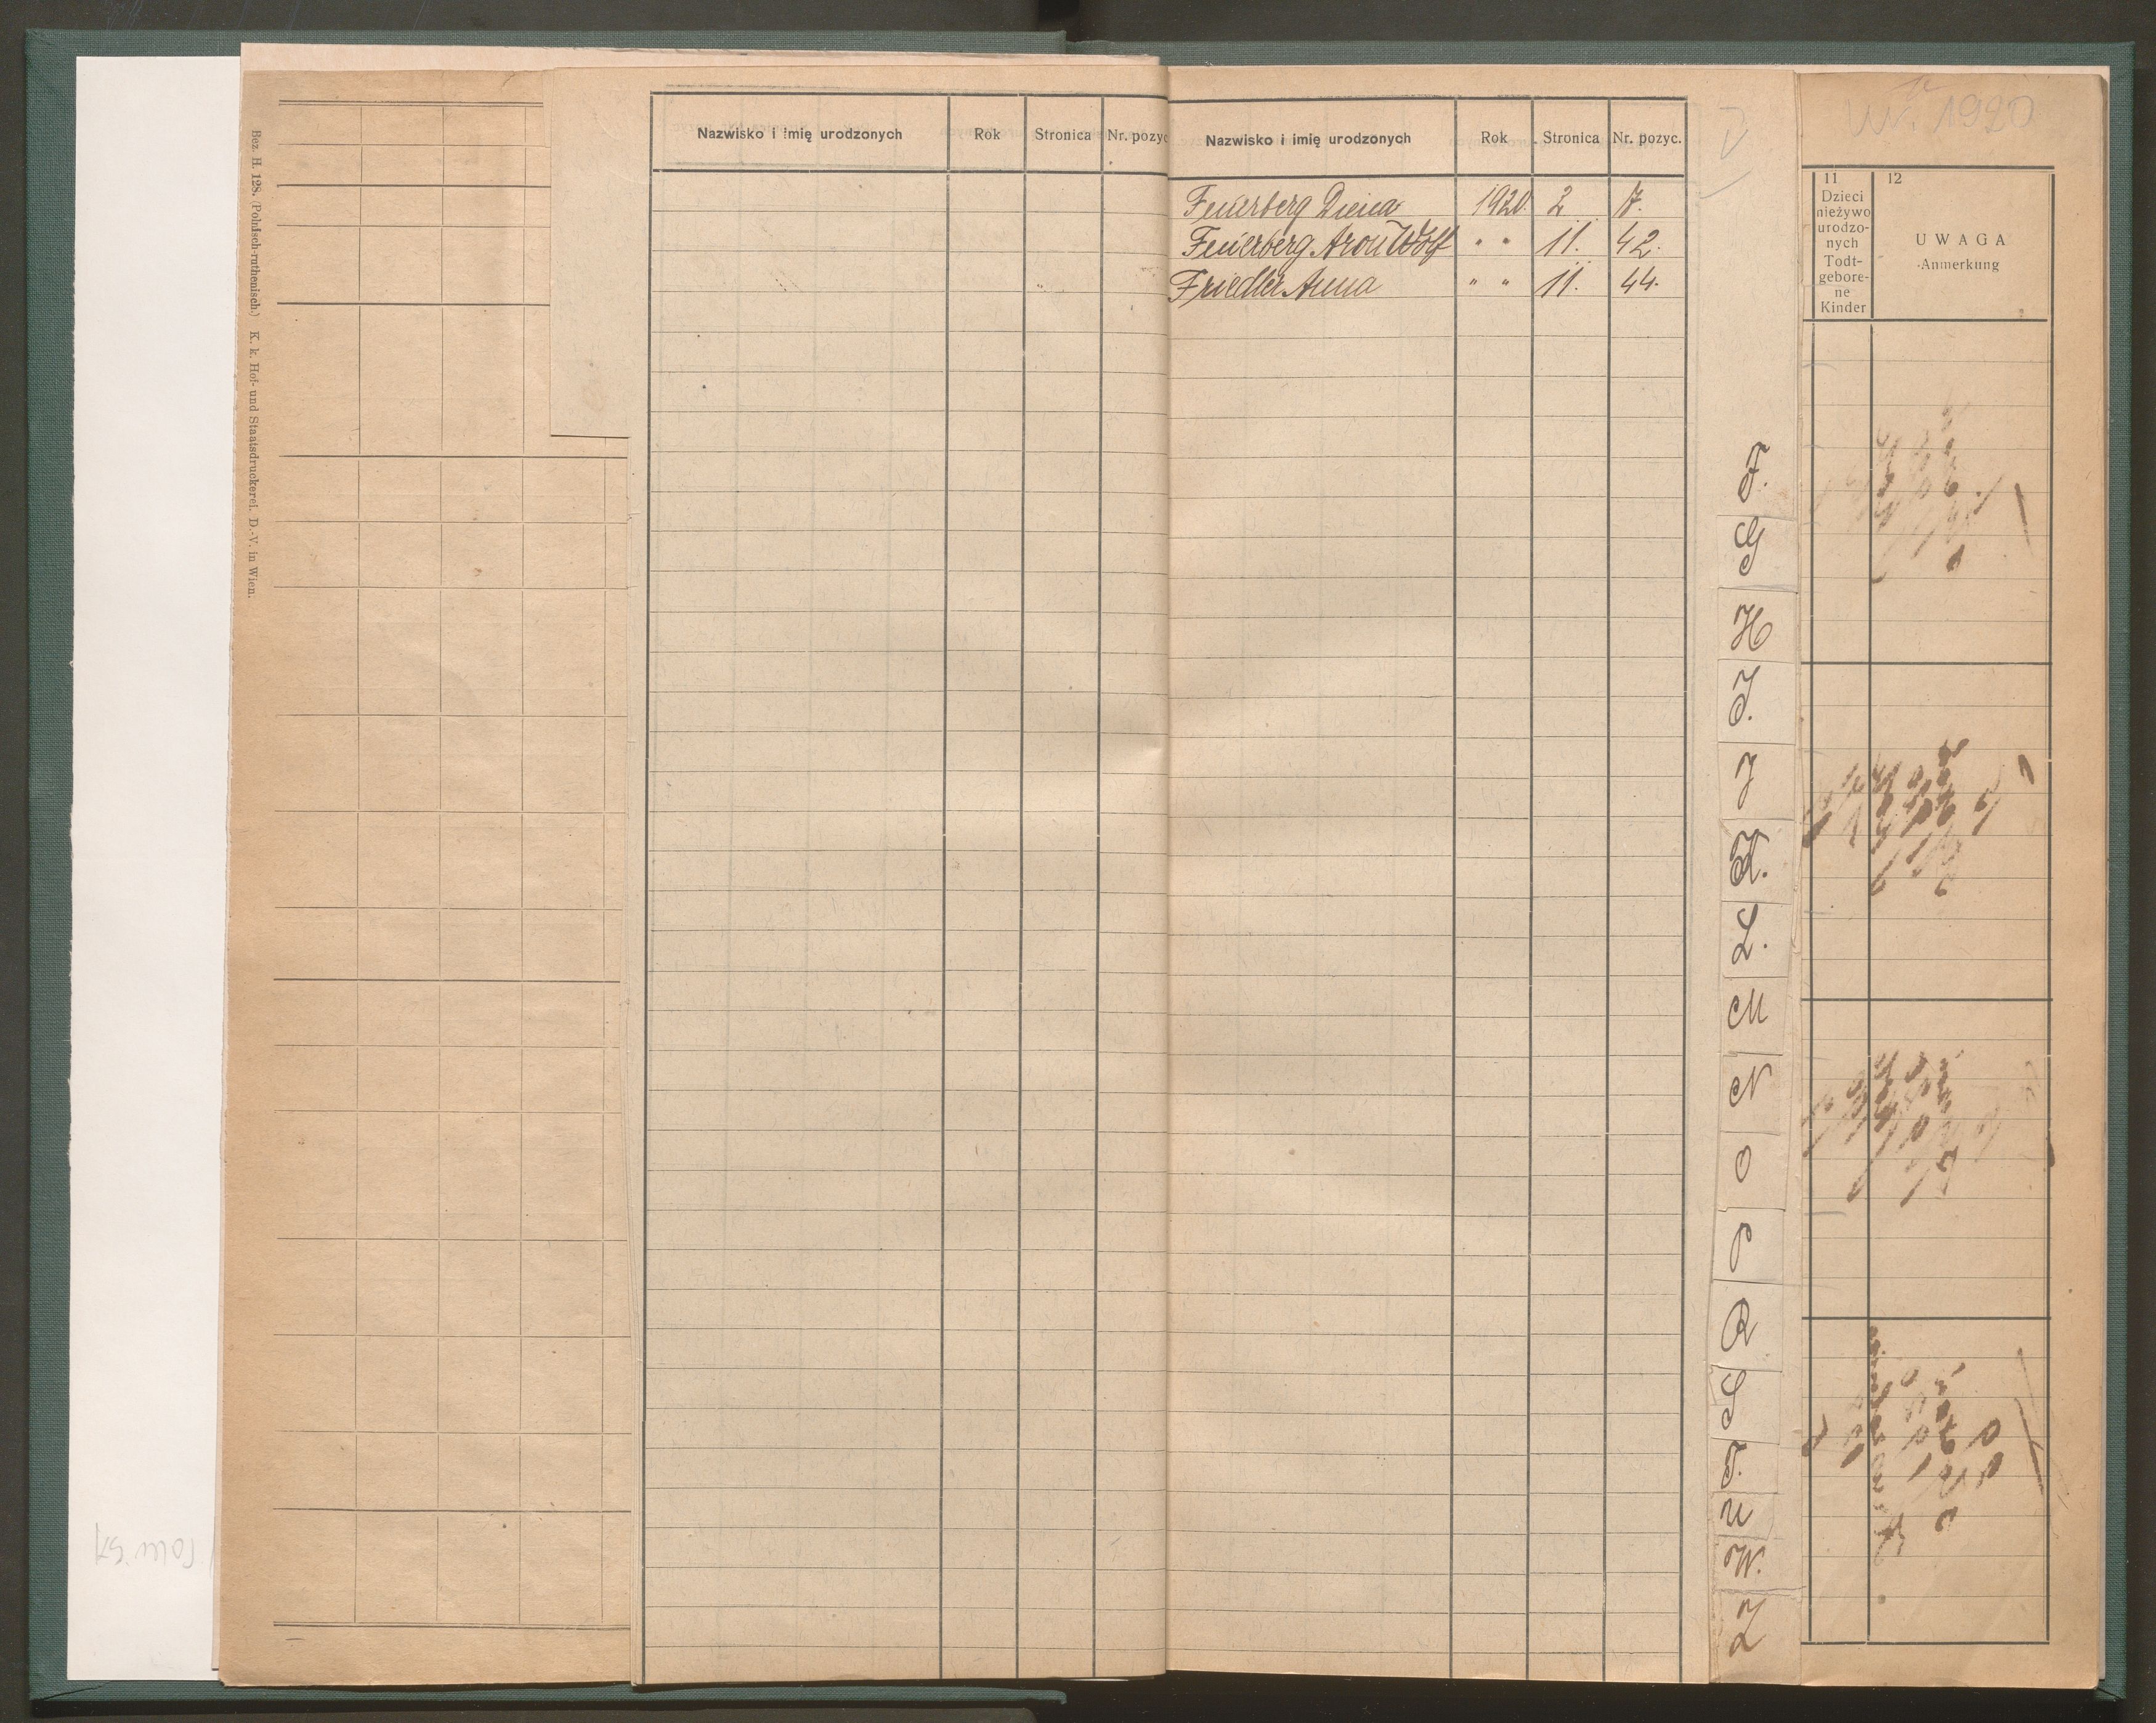 Bez. H. 128. (Polnisch-ruthenisch.) K. k. Hof- und Staatsdruckerei. D.-V. in Wien.
Nazwisko i imię urodzonych Rok Stronica Nr. pozyc
Nazwisko i imię urodzonych Rok Stronica Nr. pozyc.
Feuerberg 1920. 2 7.
Feuerberg Aron Wolf " " 11. 42.
Friedler Anna " " 11. 44.
F.
G
H
I.
J
K.
L.
M
N
O
P
R
S
T.
U
W.
Z
1920
11
Dzieci
nieżywo
urodzo-
nych
Todt-
gebore-
ne
Kinder
12
UWAGA
Anmerkung